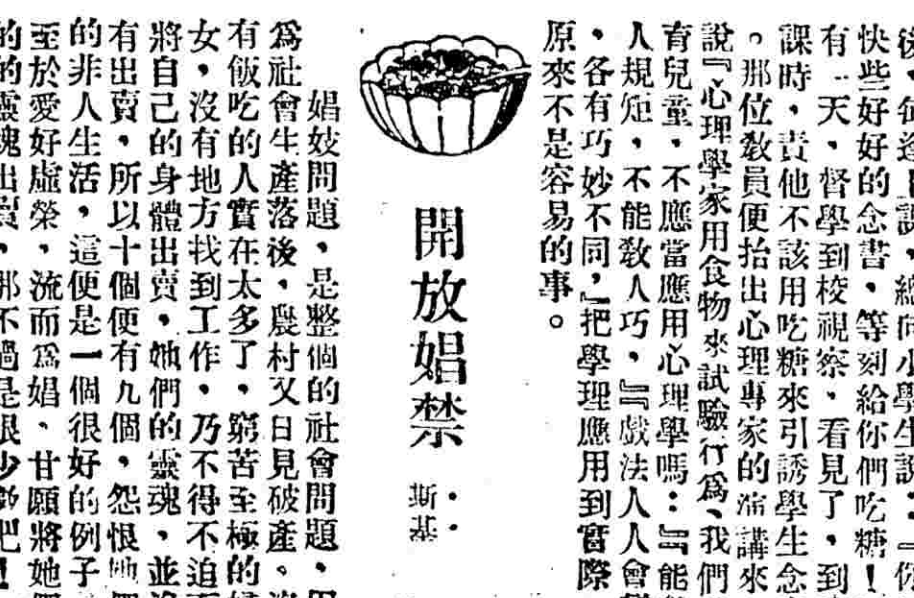 快些好好的念書、等刻給你們吃糖！
有一天、督學到校視察、看見了、到
課時、責他不該用吃糖來引誘學生念
。那位教員便抬出心理專家的演講來
說『心理學家用食物來試驗行爲、我們
育兒童、不應當應用心理學嗎：』『能
人規矩、不能教人巧、』『戲法人人會
、各有巧妙不同，』把學理應用到實際
原來不是容易的事。
開放娼禁
斯基
娼妓問題、是整個的社會問題、
爲社會生產落後、農村又日見破產。
有飯吃的人實在太多了，窮苦至極的
女，沒有地方找到工作，乃不得不迫
將自己的身體出賣，她們的靈魂，並
有出賣，所以十個便有九個，怨恨
的非人生活，這便是一個很好的例子
至於愛好虛榮，流而爲娼、甘願將她
的靈魂出賣，那不過是很少數吧！